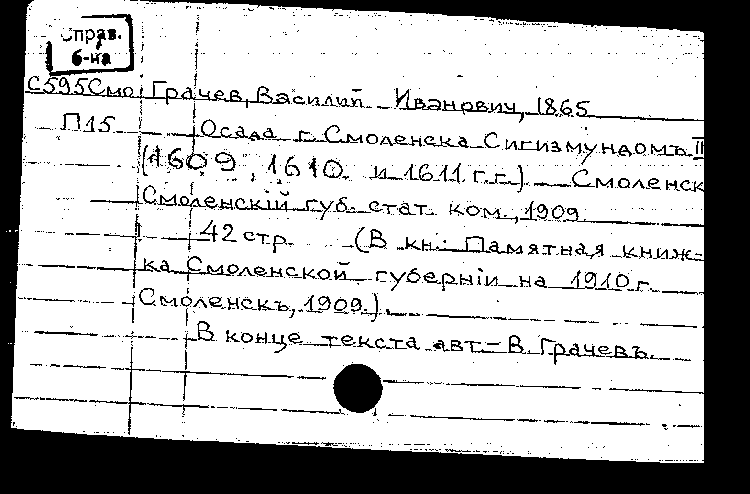 Справ.
б-ка
С595Смо Грачев, Василий Иванович, 1865
П15 Осада г. Смоленска Сигизмундомъ II
(1609, 1610 и 1611 г.г.) Смоленск
Смоленскій губ. стат. ком., 1909
42 стр. (В кн.: Памятная книж-
ка Смоленской губерніи на 1910 г.
Смоленскъ, 1909.).
В конце текста авт.– В. Грачевъ.